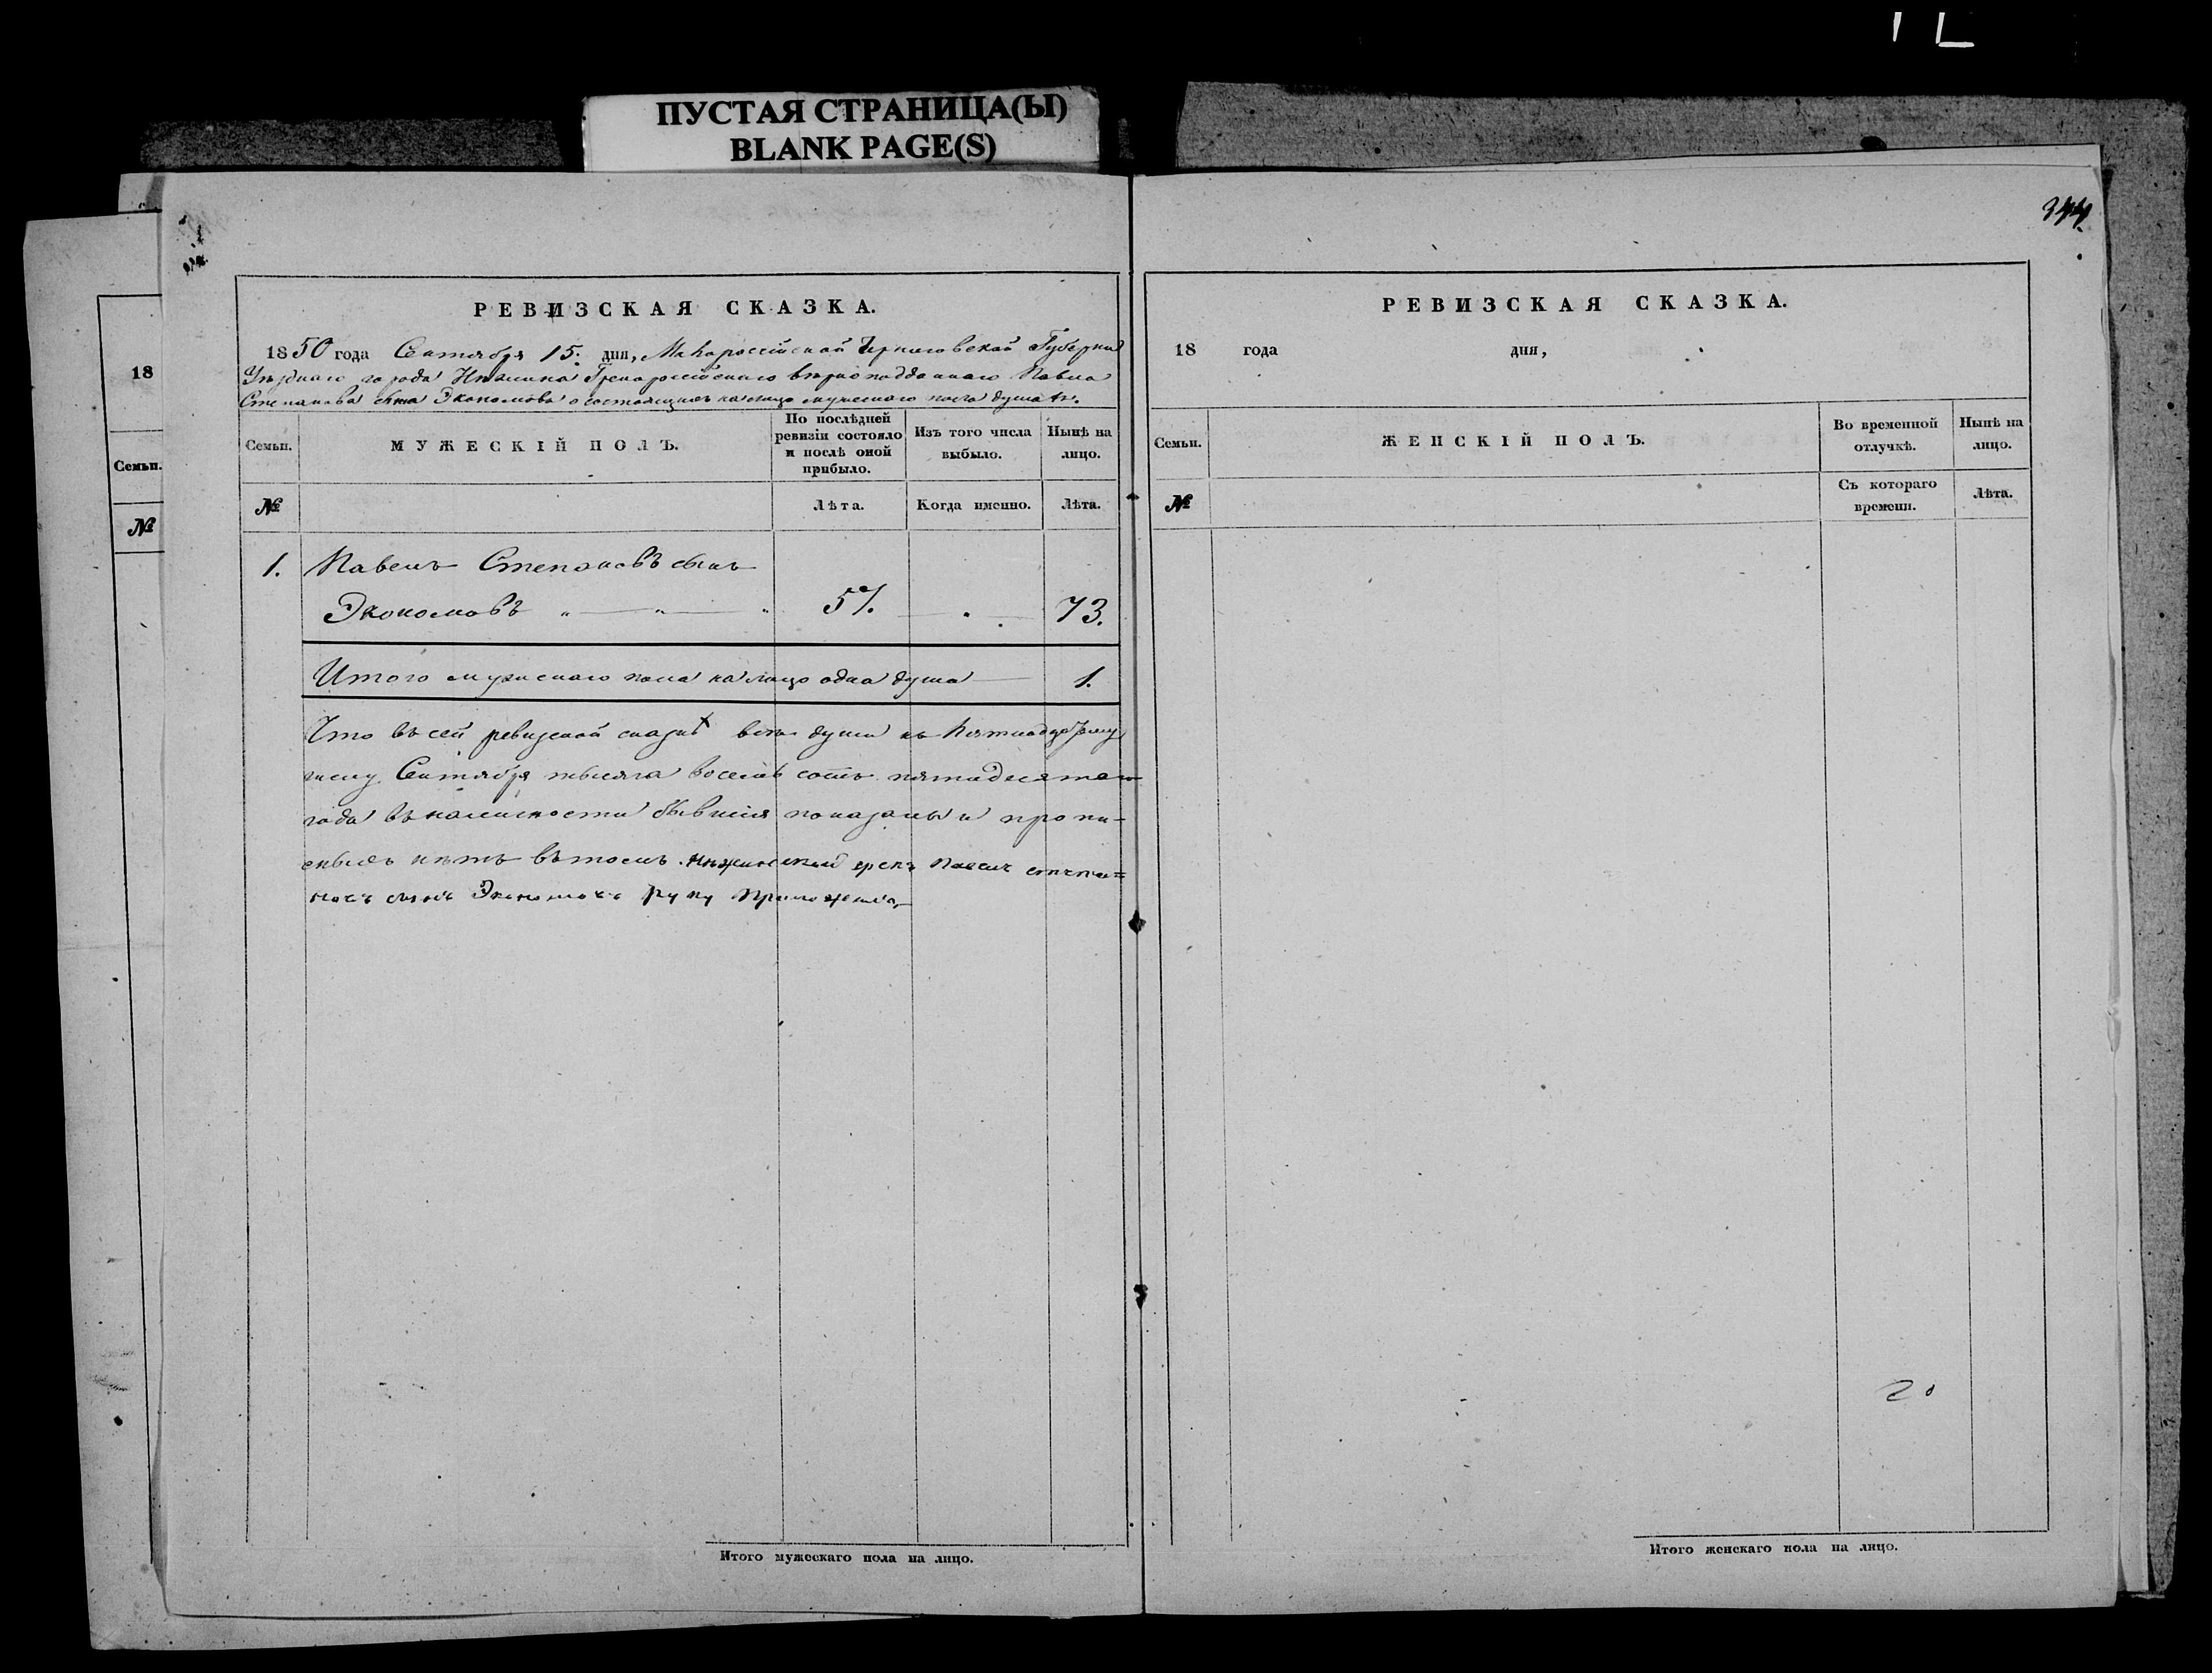 ПУСТАЯ СТРАНИЦА(Ы)
BLANK PAGE(S)
18
Семьи.
№
РЕВИЗСКАЯ СКАЗКА.
1850 года Сентября 15. дня, Малороссійской Черниговской Губерніи
Уѣзднаго города Нѣжина Грекороссійскаго вѣрноподданнаго Павла
Степанова сына Экономова о состоящихъ на лицо мужескаго пола душахъ.
Семьи.
МУЖЕСКІЙ ПОЛЪ.
По послѣдней ревизіи состояло и послѣ оной прибыло.
Изъ того числа выбыло.
Нынѣ на лицо.
№
Лѣта.
Когда именно.
Лѣта.
1. Павелъ Степановъ сынъ
Экономовъ 57. 73.
Итого мужескаго пола на лицо одна душа 1.
Что въ сей ревизской сказкѣ всѣ души къ пятнадцатому
числу Сентября тысяча восемь сотъ пятидесятаго
года въ наличности бывшія показаны и пропи-
сныхъ нѣтъ въ томъ. Нѣжинскій грекъ Павелъ степа=
новъ сынъ Экономовъ руку приложилъ
Итого мужескаго пола на лицо.
344.
РЕВИЗСКАЯ СКАЗКА.
18 года дня,
Семьи.
ЖЕНСКІЙ ПОЛЪ.
Во временной отлучкѣ.
Нынѣ на лицо.
№
Съ котораго времени.
Лѣта.
Итого женскаго пола на лицо.